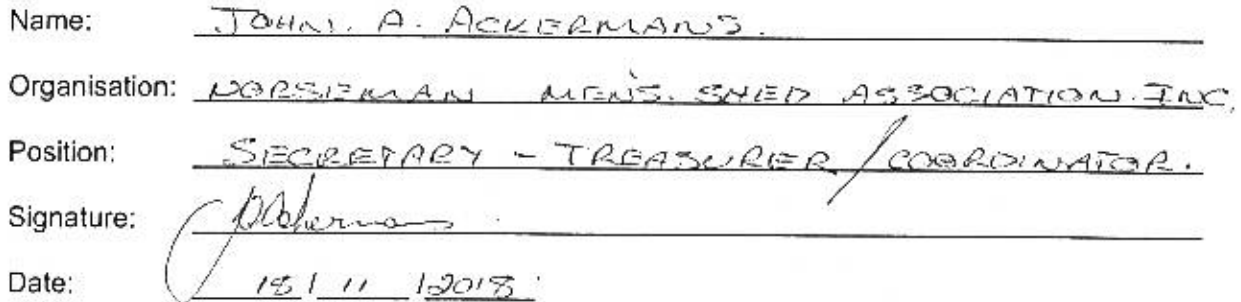 Name: JOHN. A. ACKERMANS.
Organisation: NORSEMAN MEN'S. SHED ASSOCIATION. INC.
Position: SECRETARY - TREASURER / COORDINATOR.
Signature: JAckermans
Date: 18 / 11 / 2018